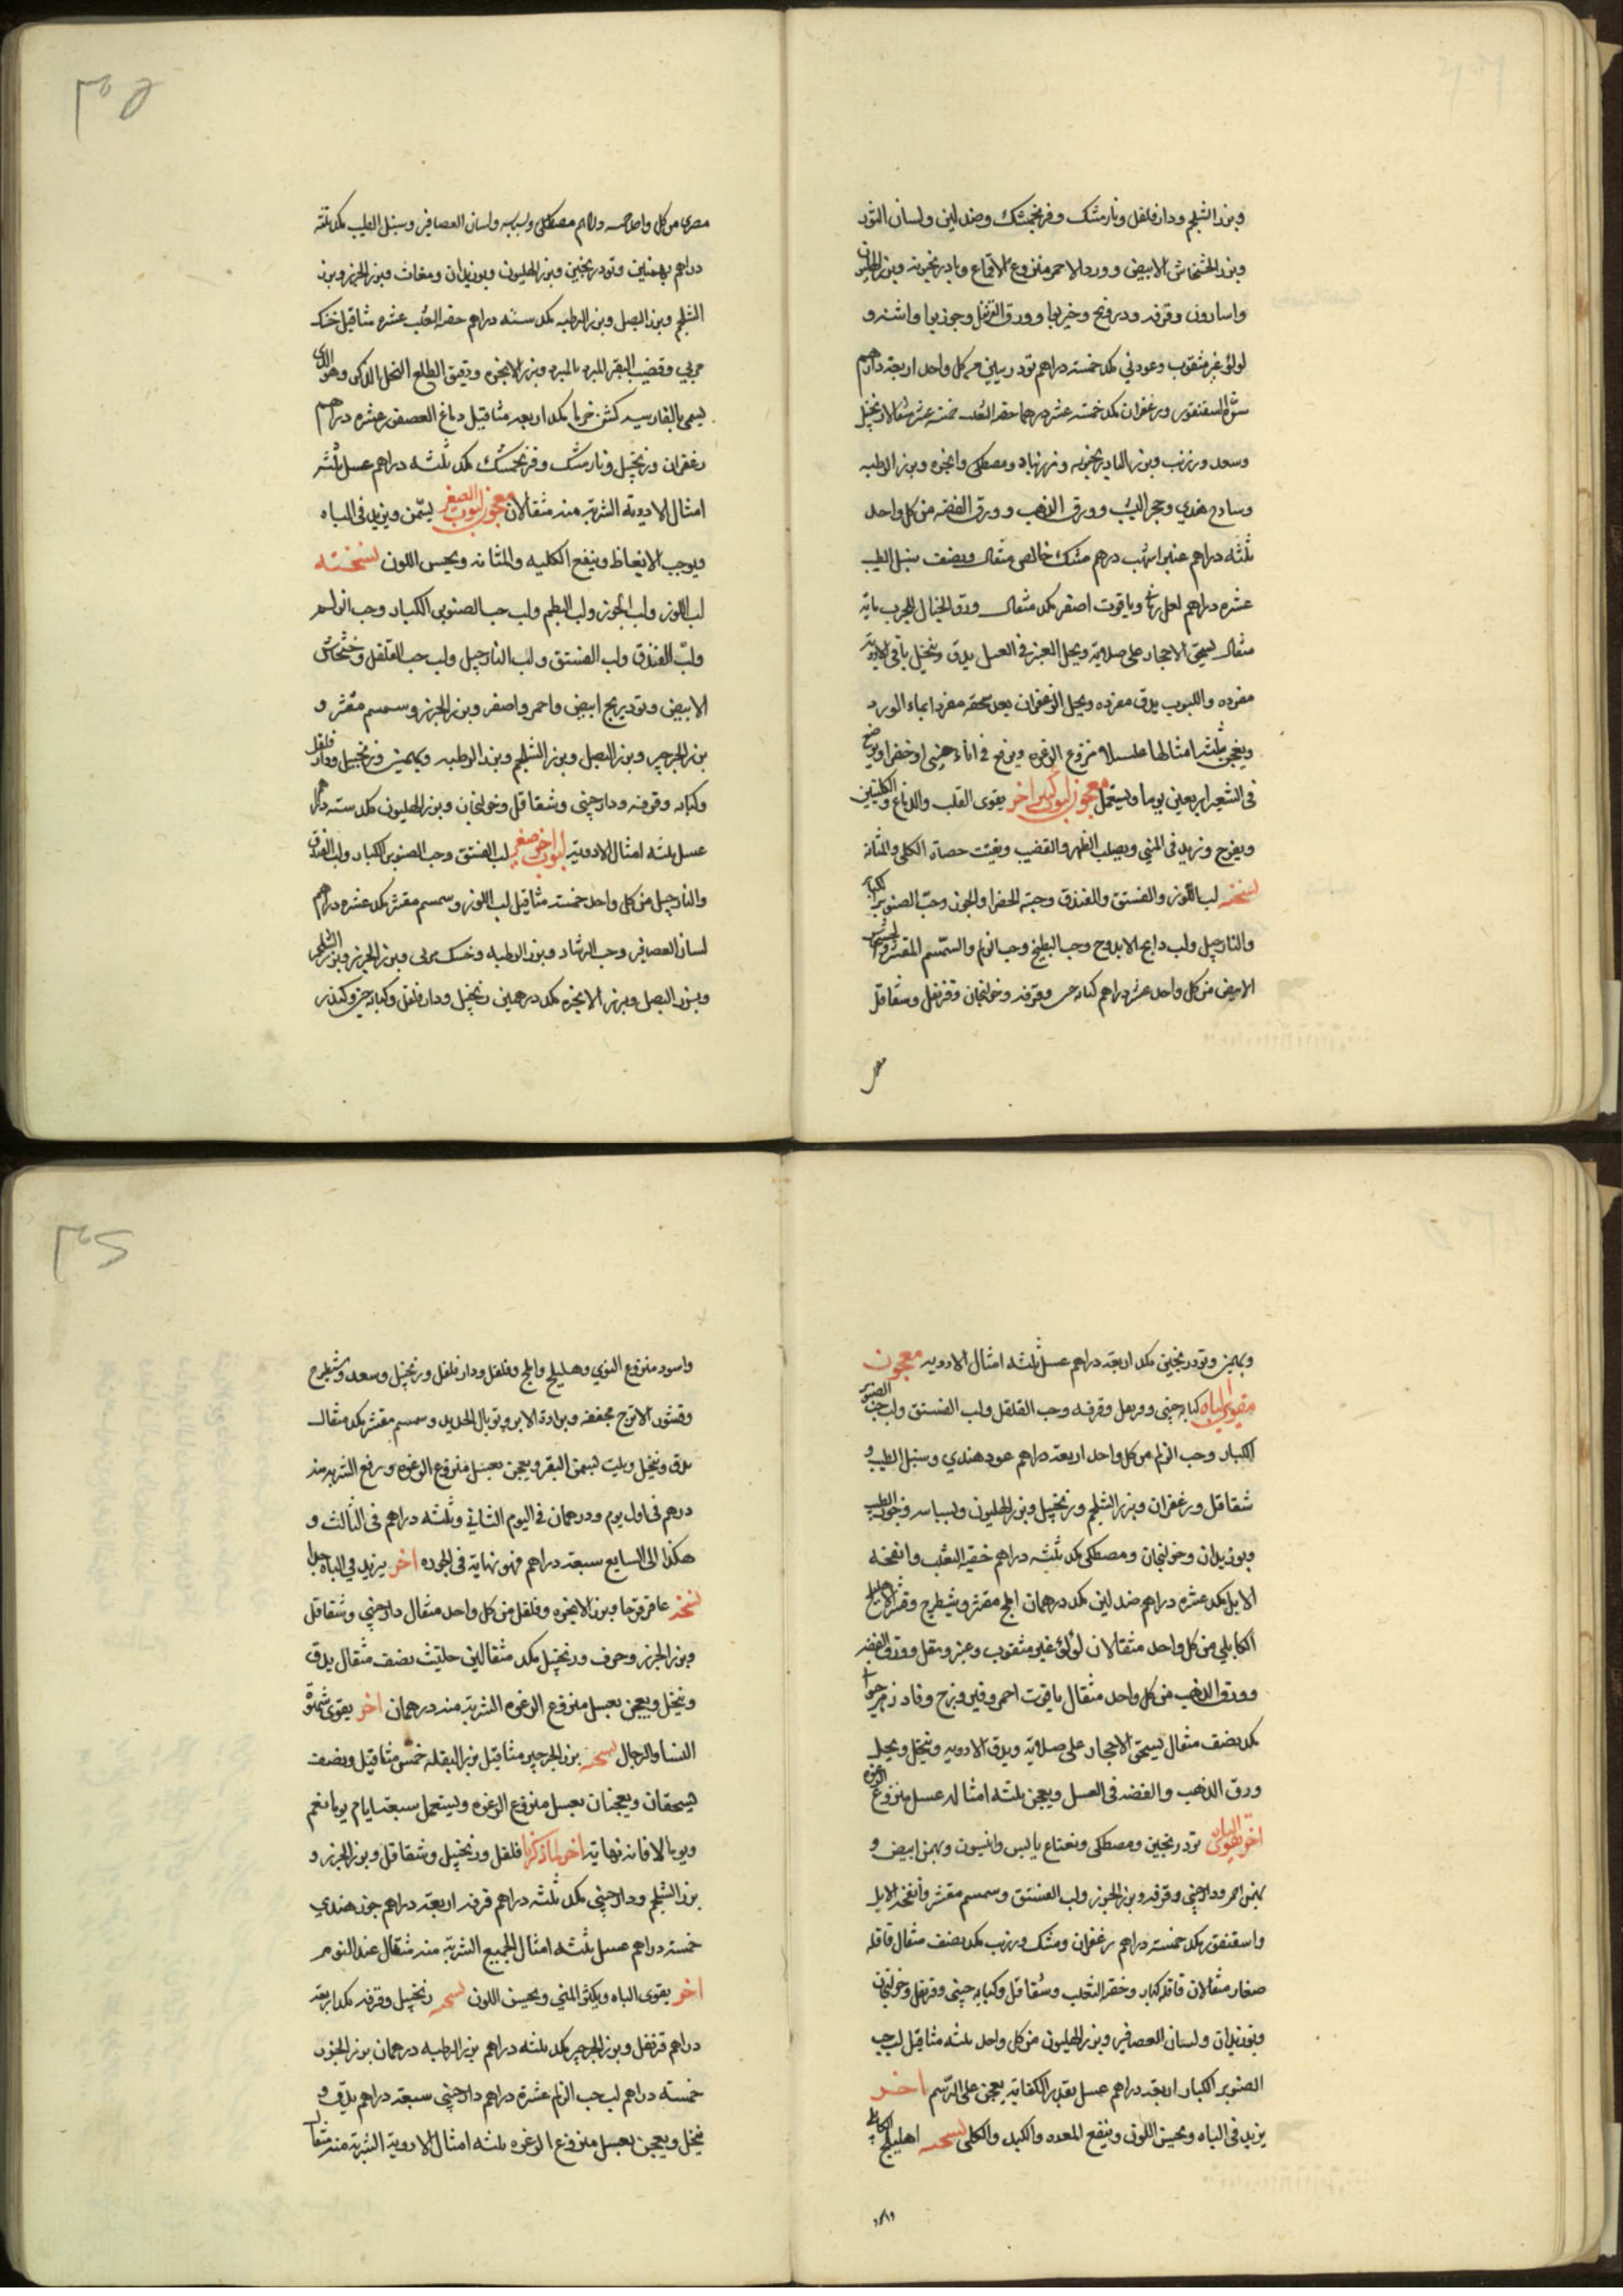 وبزر الشلجم ودار فلفل ونارمشك وفرنجمشك وصندلين ولسان الثور
وبزر الخشخاش الابيض وورد الاحمر منزوع الاقماع وبادرنجبويه وبزر الهليون
واسارون وقرفه ودرونج وخيربوا وورق القرنفل وجوزبوا واشنه و
لولؤ غير مثقوب وعود ني مكد خمسته دراهم تودريين من كل واحد اربعة دراهم
سرة السقنقور وزعفران مكد خمسته عشر درهما خصى الثعلب خمسة عشر مثقالا زنجبيل
وسعد وزرنب وبزر البادرنجبويه وزرنباد ومصطكى وانجره وبزر الرطبه
وسادج هندي وحجر اليشب وورق الذهب وورق الفضه من كل واحد
ثلثه دراهم عنبر اشهب درهم مشك خالص مثقال ونصف سنبل الطيب
عشره دراهم لعل وياقوت اصفر مكد مثقال ورق الخيال المجرب مايه
مثقال يسحق الاحجار على صلايه ويحل العنبر في العسل يدق وينخل باقي الادويه
مفرده واللبوب يدق مفرده ويحل الزعفران بعد سحقه مفردا بماء الورد
ويعجن بثلثه امثالها عسلا منزوع الرغوه ويرفع في اناء صيني او خضرا ويوضع
في الشعير اربعين يوما ويستعمل معجون لبوب كبير اخر يقوى القلب والدماغ والكليتين
ويفرح ويزيد في المني ويصلب الظهر والقضيب ويفتت حصاة الكلى والمثانه
نسخته لب اللوز والفستق والفندق وحبة الخضرا والجوز وحب الصنوبر الكبار
والنارجيل ولب وحب البطيخ وحب الزلم والسمسم المقشر والخشخاش
الابيض من كل واحد عشر دراهم كبابه وقرفه وخولنجان وقرنفل وشقاقل
مصرى
مصرى من كل واحد خمسه دراهم مصطكى وبسباسه ولسان العصافير وسنبل الطيب مكد ثلثه
دراهم بهمنين وتودريحين وبزر الهليون وبوزيدان ومغاث وبزر الجزر وبزر
الشلجم وبزر البصل وبزر الرطبه مكد سته دراهم خصى الثعلب عشره مثاقيل خسك
مربي وقضيب البقر المبرد بالمبرد وبزر الانجره ودقيق الطلع النخل الذكر وهو الذى
يسمى بالفارسيه كشن خرما مكد اربعه مثاقيل دماغ العصفور عشره دراهم
زعفران وزنجبيل ونارمشك وفرنجمشك مكد ثلثه دراهم عسل ثلثه
امثال الادويه الشربة منه مثقالان معجون لبوب الصغير يسمن ويزيد في الباه
ويوجب الانعاظ وينفع الكليه والمثانه ويحسن اللون نسخته
لب اللوز ولب الجوز ولب البطم ولب حب الصنوبر الكبار وحب الزلم
ولب الفندق ولب الفستق ولب النارجيل ولب حب القلقل وخشخاش
الابيض وتودريج ابيض واحمر واصفر وبزر الجزر وسمسم مقشر و
بزر الجرجير وبزر البصل وبزر الشلجم وبزر الرطبه وبهمنين وزنجبيل ودار فلفل
وكبابه وقرفه ودارچيني وشقاقل وخولنجان وبزر الهليون مكد سته دراهم
عسل ثلثه امثال الادويه لبوب اخر صغير لب الفستق وحب الصنوبر الكبار ولب الفندق
والنارجيل من كل واحد خمسته مثاقيل لب اللوز وسمسم مقشر مكد عشره دراهم
لسان العصافير وحب الرشاد وبزر الرطبه وخسك مربى وبزر الجزر وبزر الشلجم
وبزر البصل وبزر الانجره مكد درهمين زنجبيل ودار فلفل وكبابه وكندر
وبهمن وتودريحين مكد اربعة دراهم عسل ثلثه امثال الادويه معجون
مقوى الباه كبابه چيني وقرنفل وقرفه وحب القلقل ولب الفستق ولب حب الصنوبر
الكبار وحب الزلم من كل واحد اربعة دراهم عود هندي وسنبل الطيب و
شقاقل وزعفران وبزر الشلجم وزنجبيل وبزر الهليون وبسباسه وجوز الطيب
وبوزيدان وخولنجان ومصطكى مكد ثلثه دراهم خصى الثعلب وانفحه
الايل مكد عشره دراهم صندلين مكد درهمان املج مقشر وشيطرج وقشر الاهليلج
الكابلي من كل واحد مثقالان لؤلؤ غير مثقوب وعنبر ومقل وورق الفضه
وورق الذهب من كل واحد مثقال ياقوت احمر وفيروزج وفادزهر
مكد نصف مثقال يسحق الاحجار على صلايه ويدق الادويه وينخل ويحل
ورق الذهب والفضه في العسل ويعجن بثلثه امثاله عسل منزوع الرغوه
اخر يقوى الباه تودريحين ومصطكى ونعناع يابس وانيسون وبهمن ابيض و
بهمن احمر ودارچيني وقرفه وبزر الجزر ولب الفستق وسمسم مقشر وانفحه الايل
واسقنقور مكد خمسته دراهم زعفران ومشك وزرنب مكد نصف مثقال قاقله
صغار مثقالان قاقله كبار وخصى الثعلب وشقاقل وكبابه چيني وقرنفل وخولنجان
وبوزيدان ولسان العصافير وبزر الهليون من كل واحد ثلثه مثاقيل لب حب
الصنوبر الكبار اربعه دراهم عسل بقدر الكفايه يعجن على الرسم اخر
يزيد في الباه ويحسن اللون وينفع المعده والكبد والكلى نسخته اهليلج كابلي
واسود
واسود منزوع النوي وهليلج واملج وفلفل ودار فلفل وزنجبيل وسعد وشيطرج
وقشور الاترج مجففه وبرادة الابر وتوبال الحديد وسمسم مقشر مكد مثقال
يدق وينخل ويلت بسمن البقر ويعجن بعسل منزوع الرغوه ويرفع الشربه منه
درهم في اول يوم ودرهمان في اليوم الثاني وثلثه دراهم في الثالث و
هكذا الى السابع سبعة دراهم فهو نهاية في الجوده اخر يزيد في الباه جدا
نسخته عاقرقرحا وبزر الانجره وفلفل من كل واحد مثقال دارچيني وشقاقل
وبزر الجزر وحرف وزنجبيل مكد مثقالين حلتيت نصف مثقال يدق
وينخل ويعجن بعسل منزوع الرغوه الشربة منه درهمان اخر يقوى شهوة
النسا والرجال نسخته بزر الجرجير مثاقيل بزر البقله خمس مثاقيل ونصف
يسحقان ويعجنان بعسل منزوع الرغوه ويستعمل سبعة ايام يوما نعم
ويوما لا فانه نهاية اخر لما ذكرنا فلفل وزنجبيل وشقاقل وبزر الجزر و
بزر الشلجم ودارچيني مكد ثلثه دراهم قرفه اربعة دراهم جوز هندي
خمسته دراهم عسل ثلثه امثال الجميع الشربة منه مثقال عند النوم
اخر يقوى الباه ويكثر المني ويحسن اللون نسخته زنجبيل وقرفه مكد اربعة
دراهم قرنفل وبزر الجرجير مكد ثلثه دراهم بزر الرطبه درهمان بزر الجزر
خمسته دراهم لب حب الزلم عشرة دراهم دارچيني سبعة دراهم يدق و
ينخل ويعجن بعسل منزوع الرغوه ثلثه امثال الادوية الشربة منه مثقال